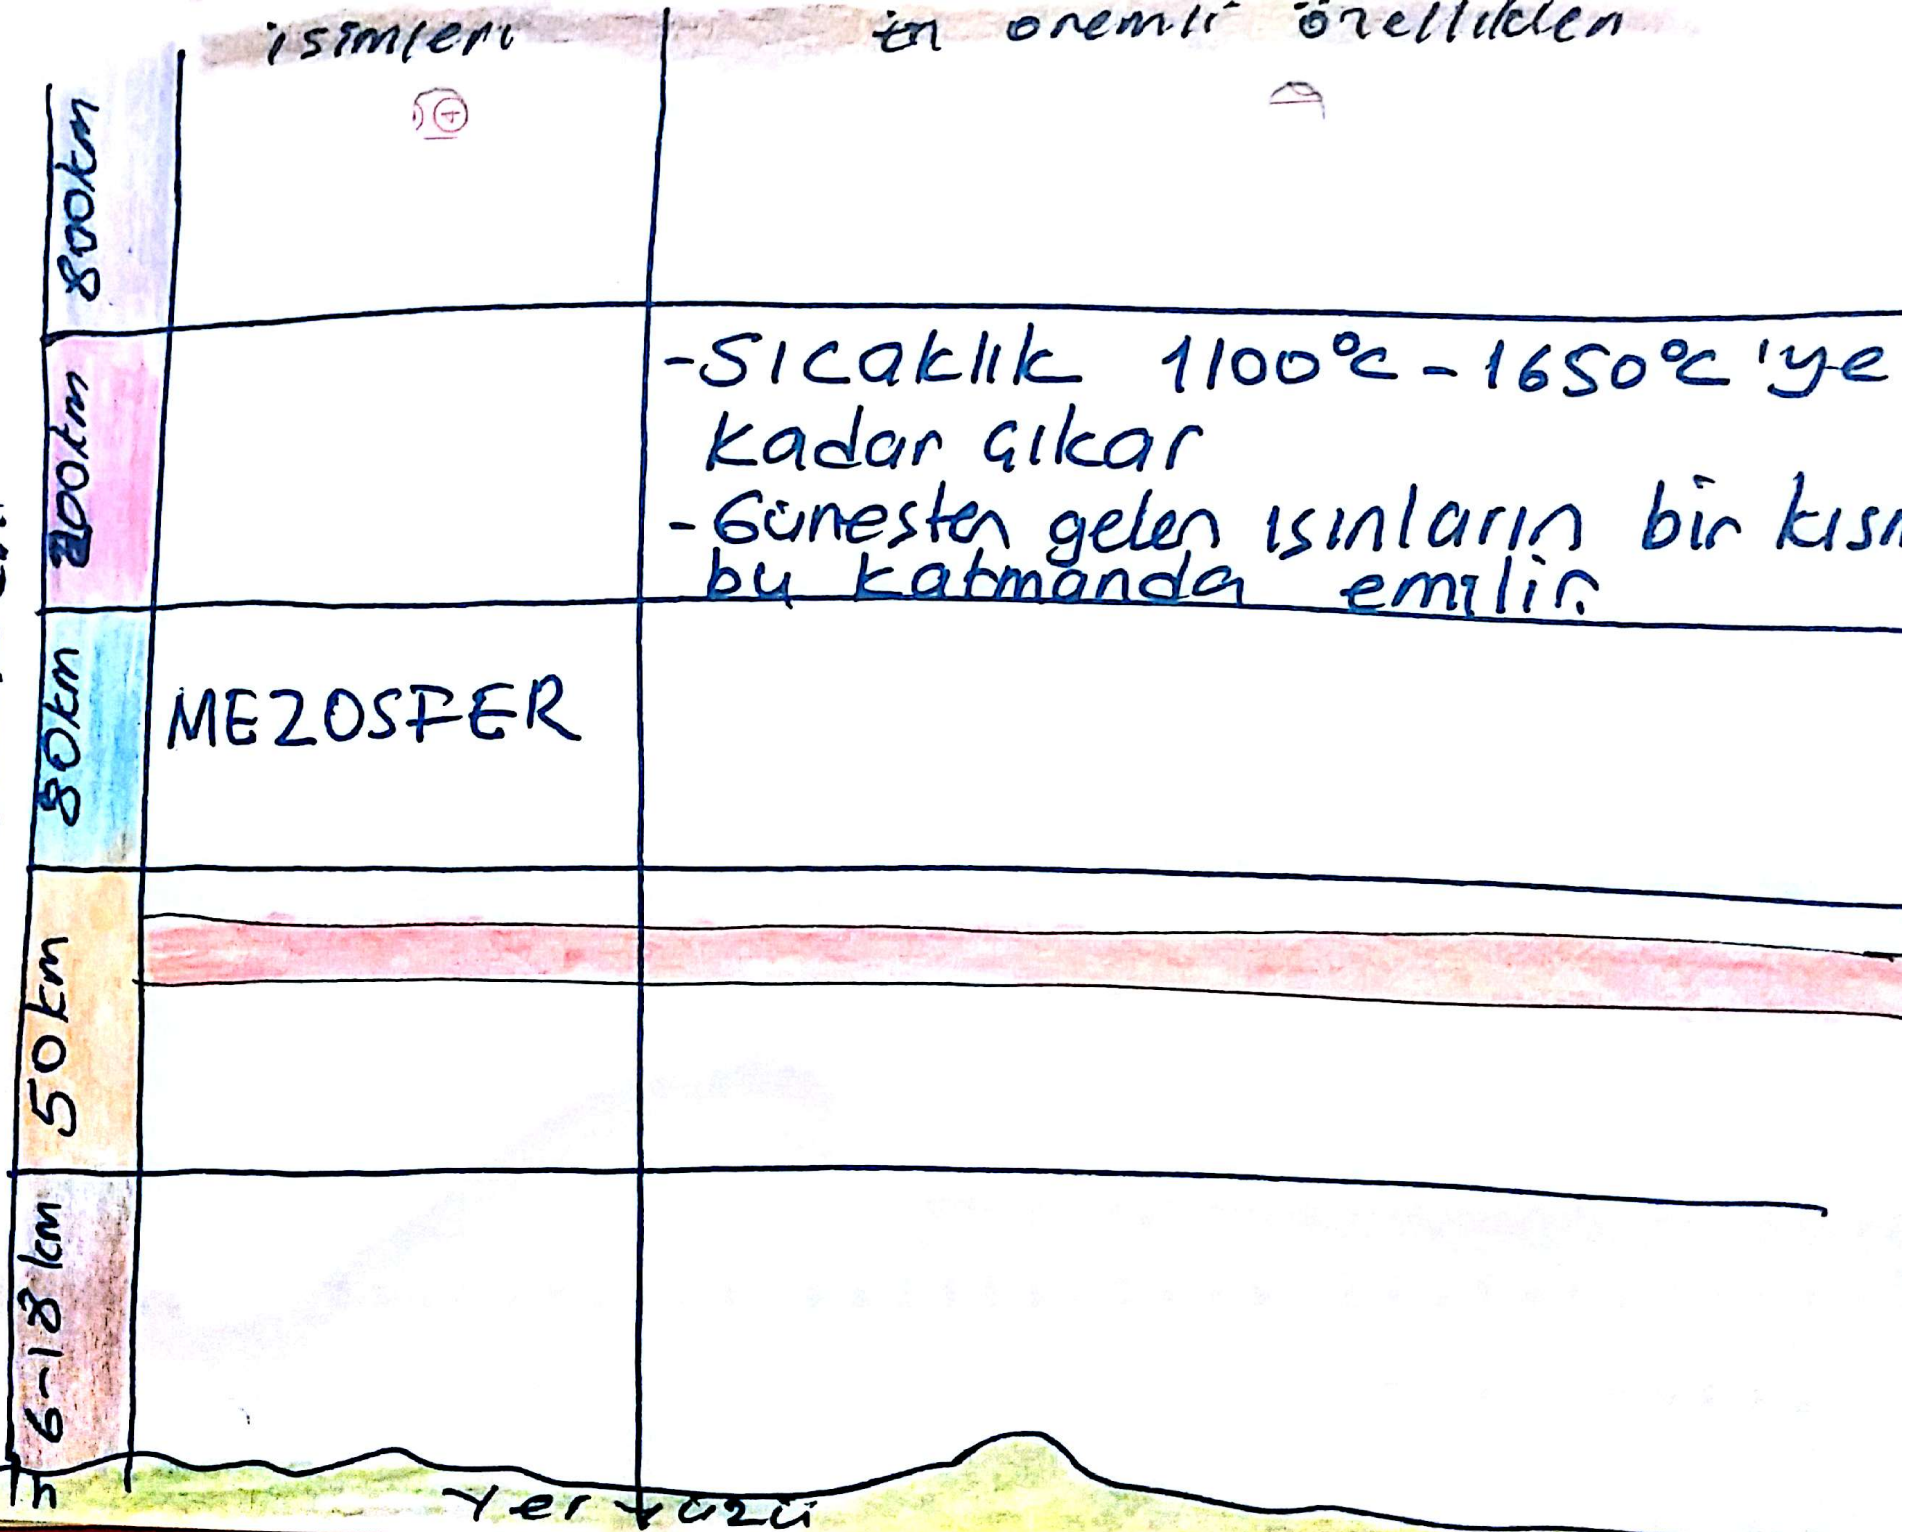 isimleri
en önemli özellikleri
800km
-Sıcaklık 1100°c - 1650°c 'ye
kadar çıkar
200km
-Günesten gelen ısınların bir kısm
bu katmanda emilir.
80km
MEZOSFER
50km
6-18km
Yer yüzü